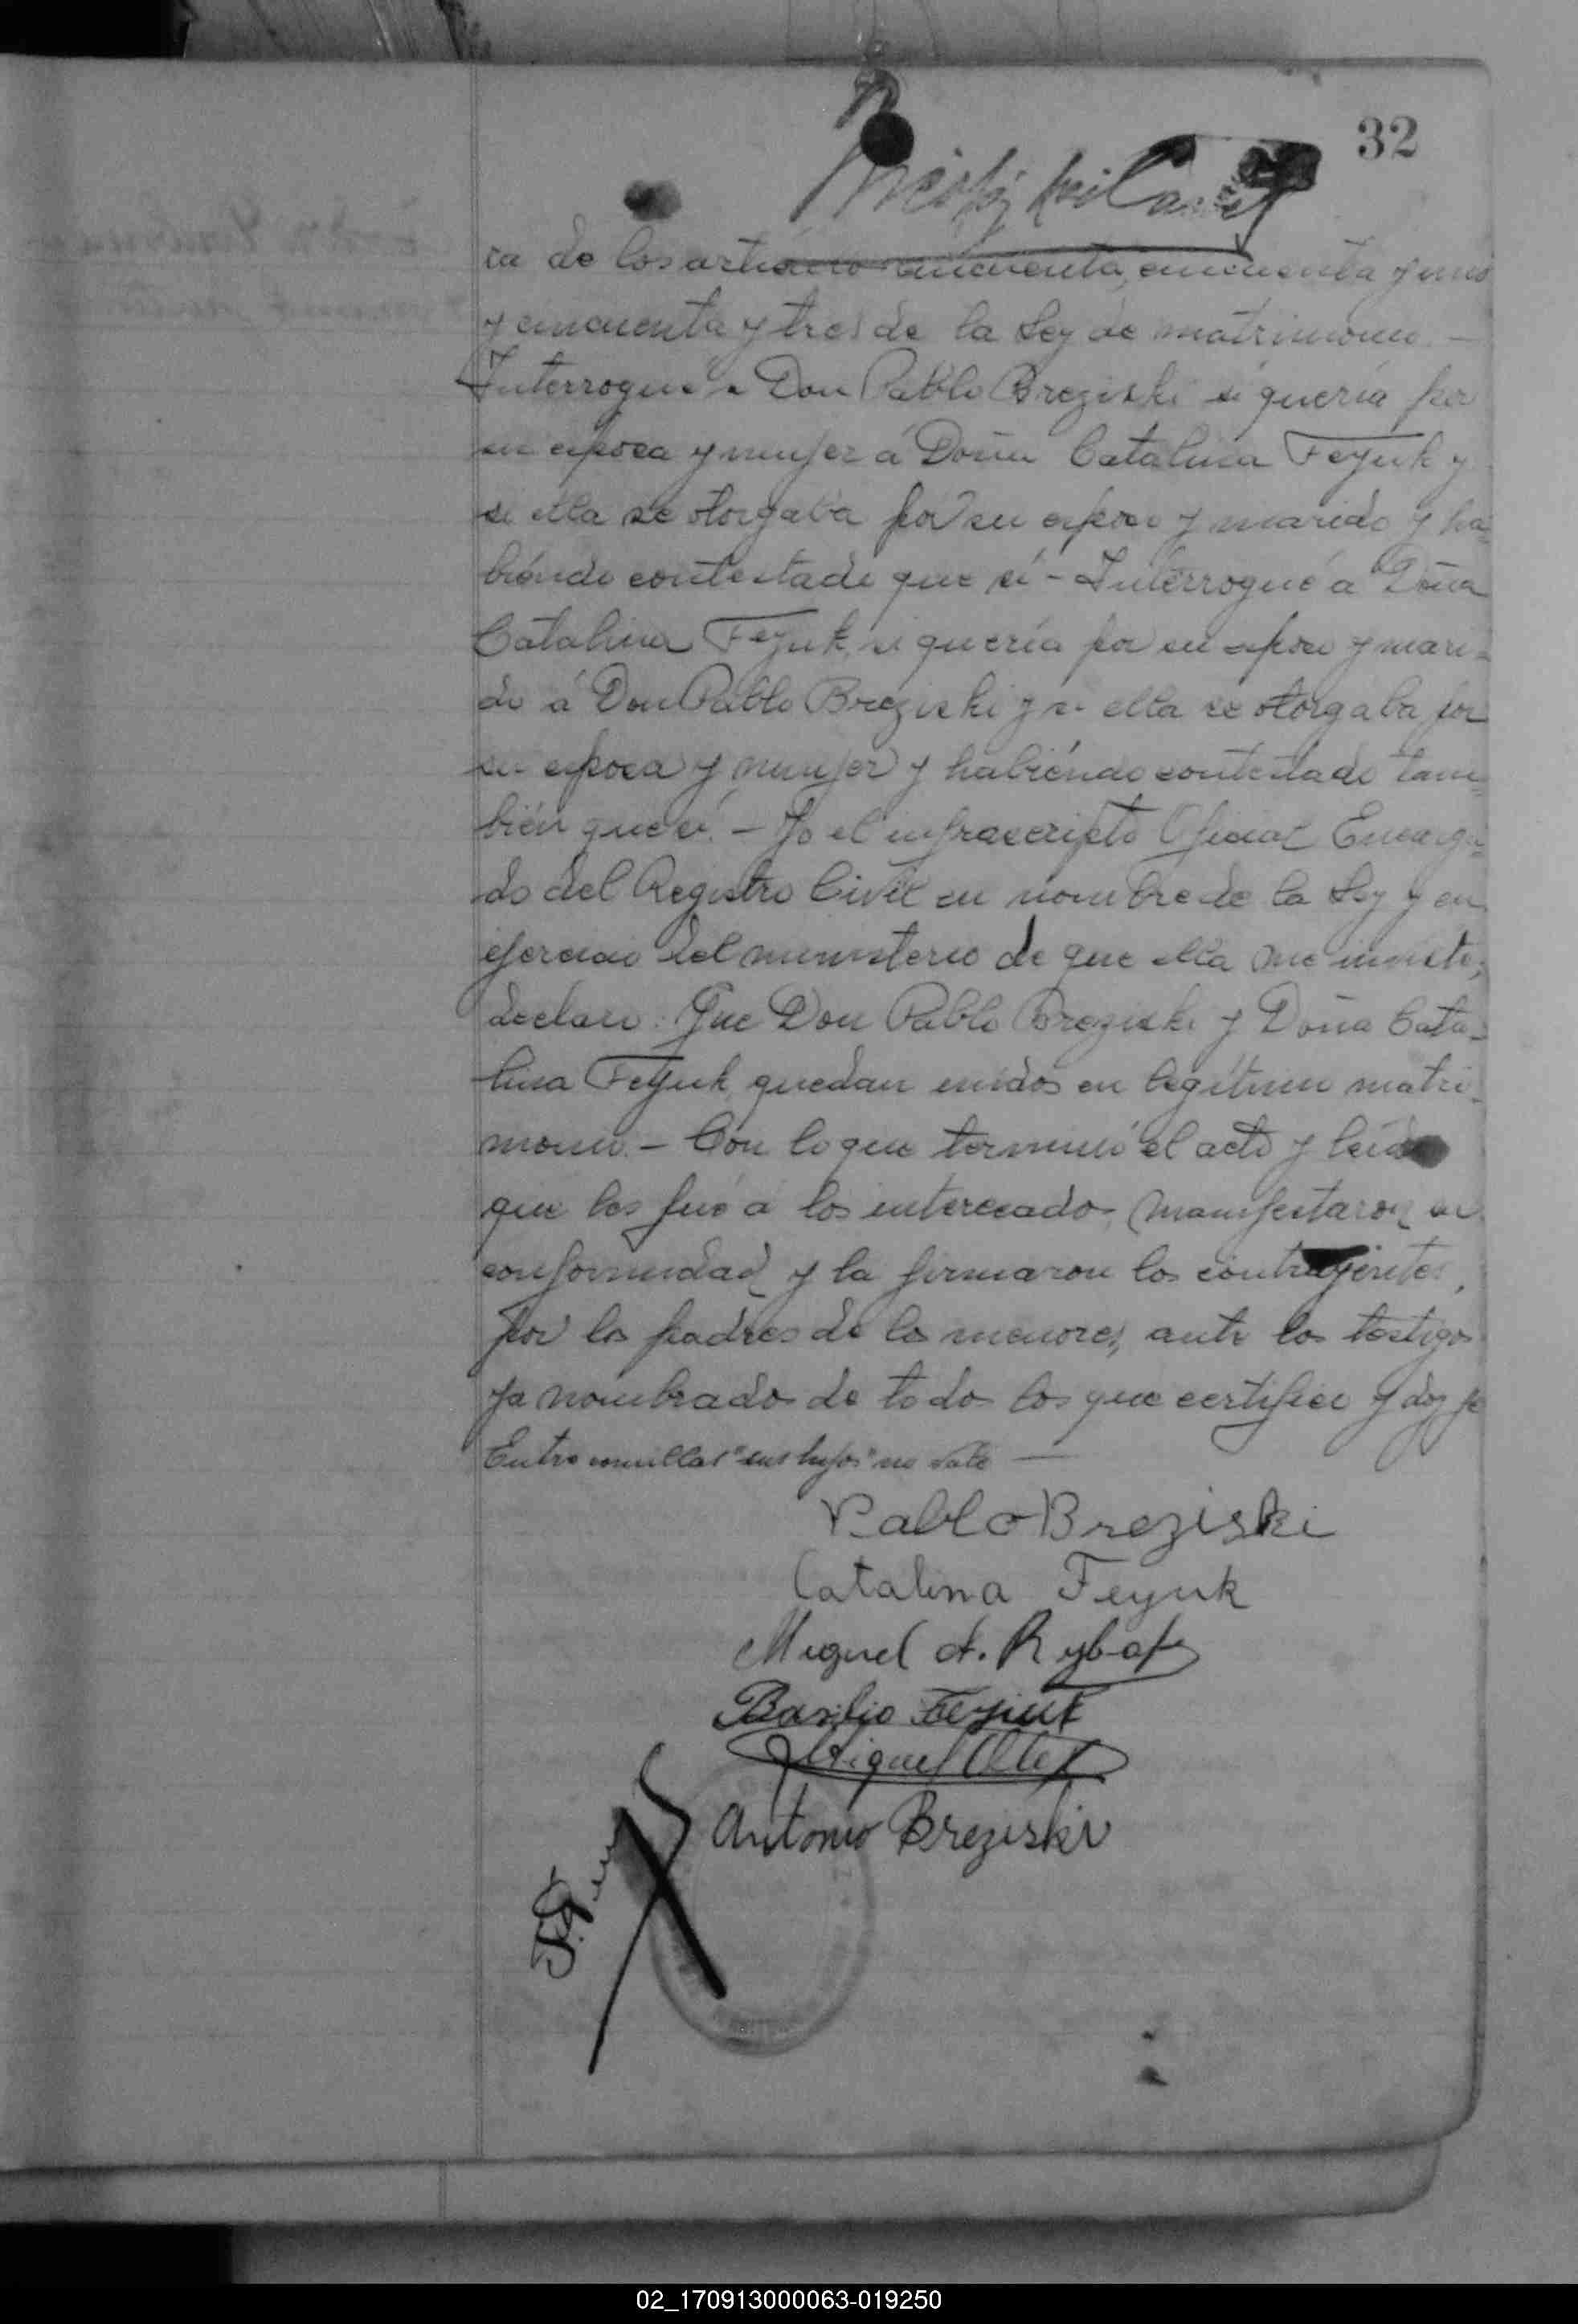 32
ra de los articulo cincuenta, cincuenta y uno
y cincuenta y tres de la Ley de matrimonio. —
Interrogué a Don Pablo Breziski si quería por
su esposa y mujer á Doña Catalina Feyuk y
si ella se otorgaba por su esposo y marido y ha=
biéndo contestado que sí - Interrogué a Doña
Catalina Feyuk, si quería por su esposo y mari=
do á Don Pablo Breziski y si ella se otorgaba por
su esposa y mujer y habiéndo contestado tam=
bién que sí. - Yo el infrascripto Oficial Encarga=
do del Registro Civil en nombre de la Ley y en
ejercicio del ministerio de que ella me inviste,
declaro: Que Don Pablo Breziski y Doña Cata=
lina Feyuk, quedan unidos en legítimo matri-
monio. - Con lo que terminó el acto y leída
que les fué á los interesados, manifestaron su
conformidad y la firmaron los contrayentes,
por los padres de los menores, ante los testigos
ya nombrados de todo los que certifico y doy fe
Entre comillas "sus hijos" no vale —
Pablo Breziski
Catalina Feyuk
Miguel A. Rybak
Basilio Feyuk
Miguel
Antonio Breziski
02_170913000063-019250